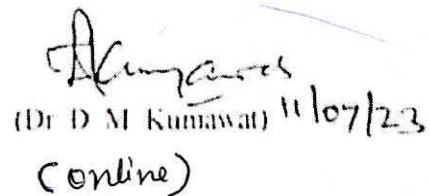 (Dr D M Kumawat) 11/07/23
(online)